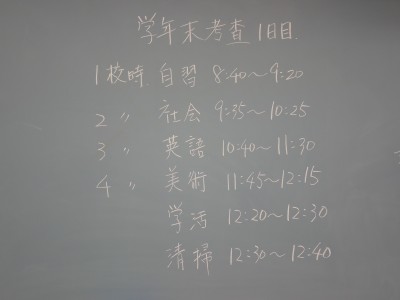 学年末考査 1日目
1校時 自習 8:40〜9:20
2 〃 社会 9:35〜10:25
3 〃 英語 10:40〜11:30
4 〃 美術 11:45〜12:15
学活 12:20〜12:30
清掃 12:30〜12:40